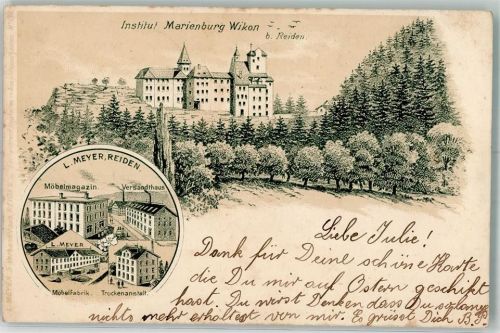 Institut Marienburg Wikon
b. Reiden.
L. MEYER, REIDEN.
Möbelmagazin. Versandthaus
L. MEYER
Möbelfabrik. Trockenanstalt.
Liebe Julie!
Dank für Deine schöne Karte
die Du mir auf Ostern geschickt
hast. Du wirst Denken dass Du so lange
nichts mehr erhaltest von mir. Es grüsst Dich B.